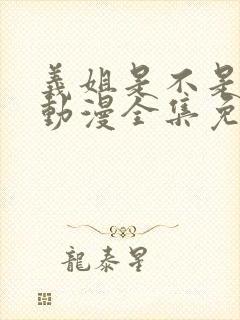 義姐是不是
動漫全集免
龍泰星